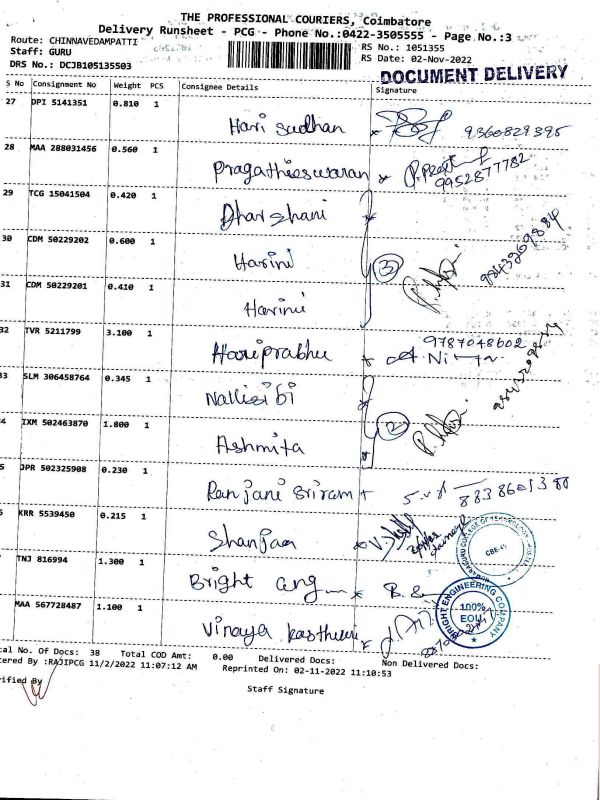 THE PROFESSIONAL COURIERS, Coimbatore
Delivery Runsheet - PCG - Phone No.:0422-3505555 - Page No.:3
Route: CHINNAVEDAMPATTI
RS No.: 1051355
Staff: GURU
RS Date: 02-Nov-2022
DRS No.: DCJB105135503
DOCUMENT DELIVERY
S No Consignment No Weight PCS Consignee Details Signature
27 DPI 5141351 0.810 1 Hari Sudhan 9360829395
28 MAA 288031456 0.560 1 Pragathieswaran 9952877782
29 TCG 15041504 0.420 1 Dharshani
30 CDM 50229202 0.600 1 Harini 3
31 CDM 50229201 0.410 1 Harini
32 TVR 5211799 3.100 1 Hariprabhu 9787048602
33 SLM 306458764 0.345 1 Nallisibi
4 IXM 502463870 1.800 1 Ashmita 2
5 JPR 502325908 0.230 1 Ranjani Sriram 8838601380
KRR 5539450 0.215 1 Shanjaa
TNJ 816994 1.300 1 Bright eng
MAA 567728487 1.100 1 Vinaya Kasthuri
BRIGHT ENGINEERING COMPANY
100%
EOU
tal No. Of Docs: 38 Total COD Amt: 0.00 Delivered Docs: Non Delivered Docs:
tered By :RAJIPCG 11/2/2022 11:07:12 AM Reprinted On: 02-11-2022 11:10:53
rified By
Staff Signature